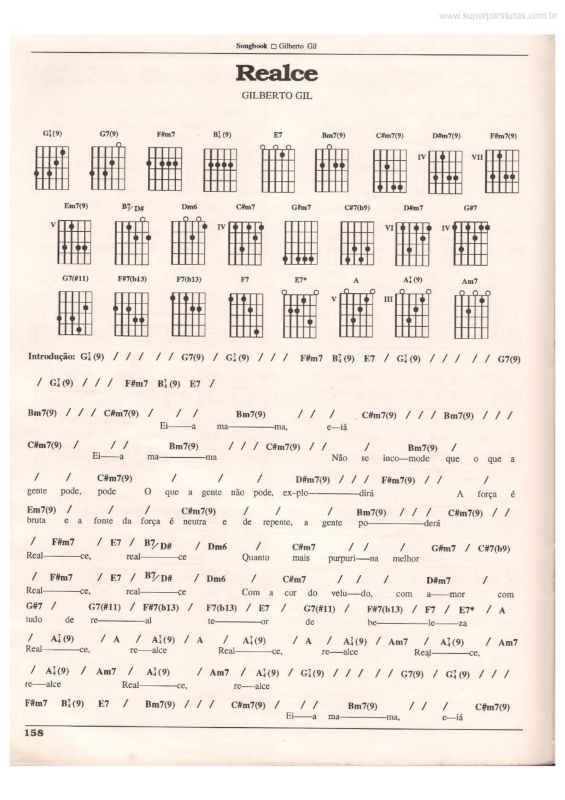 www.superpartituras.com.br
Songbook □ Gilberto Gil
Realce
GILBERTO GIL
G7/4(9) G7(9) F#m7 B7/4(9) E7 Bm7(9) C#m7(9) D#m7(9) F#m7(9)
IV VII
Em7(9) B7/D# Dm6 C#m7 G#m7 C#7(b9) D#m7 G#7
V IV VI IV
G7(#11) F#7(b13) F7(b13) F7 E7* A A7/4(9) Am7
V III
Introdução: G7/4(9) / / / / / G7(9) / G7/4(9) / / / F#m7 B7/4(9) E7 / G7/4(9) / / / / / G7(9)
/ G7/4(9) / / / F#m7 B7/4(9) E7 /
Bm7(9) / / / C#m7(9) / / / Bm7(9) / / / C#m7(9) / / / Bm7(9) / / /
Ei——a ma————ma, e—iá
C#m7(9) / / / Bm7(9) / / / C#m7(9) / / / Bm7(9) /
Ei——a ma————ma Não se inco—mode que o que a
/ / C#m7(9) / / / D#m7(9) / / / F#m7(9) / / /
gente pode, pode O que a gente não pode, ex-plo————dirá A força é
Em7(9) / / / C#m7(9) / / / Bm7(9) / / / C#m7(9) / /
bruta e a fonte da força é neutra e de repente, a gente po————derá
/ F#m7 / E7 / B7/D# / Dm6 / C#m7 / / / G#m7 / C#7(b9)
Real———ce, real———ce Quanto mais purpuri—na melhor
/ F#m7 / E7 / B7/D# / Dm6 / C#m7 / / / D#m7 /
Real———ce, real———ce Com a cor do velu—do, com a—mor com
G#7 / G7(#11) / F#7(b13) / F7(b13) / E7 / G7(#11) / F#7(b13) / F7 / E7* / A
tudo de re————al te————or de be————le——za
/ A7/4(9) / A / A7/4(9) / A / A7/4(9) / A / A7/4(9) / Am7 / A7/4(9) / Am7
Real———ce, re—alce Real———ce, re—alce Real———ce,
/ A7/4(9) / Am7 / A7/4(9) / Am7 / A7/4(9) / G7/4(9) / / / / / G7(9) / G7/4(9) / / /
re—alce Real———ce, re—alce
F#m7 B7/4(9) E7 / Bm7(9) / / / C#m7(9) / / / Bm7(9) / / / C#m7(9)
Ei——a ma————ma, e—iá
158